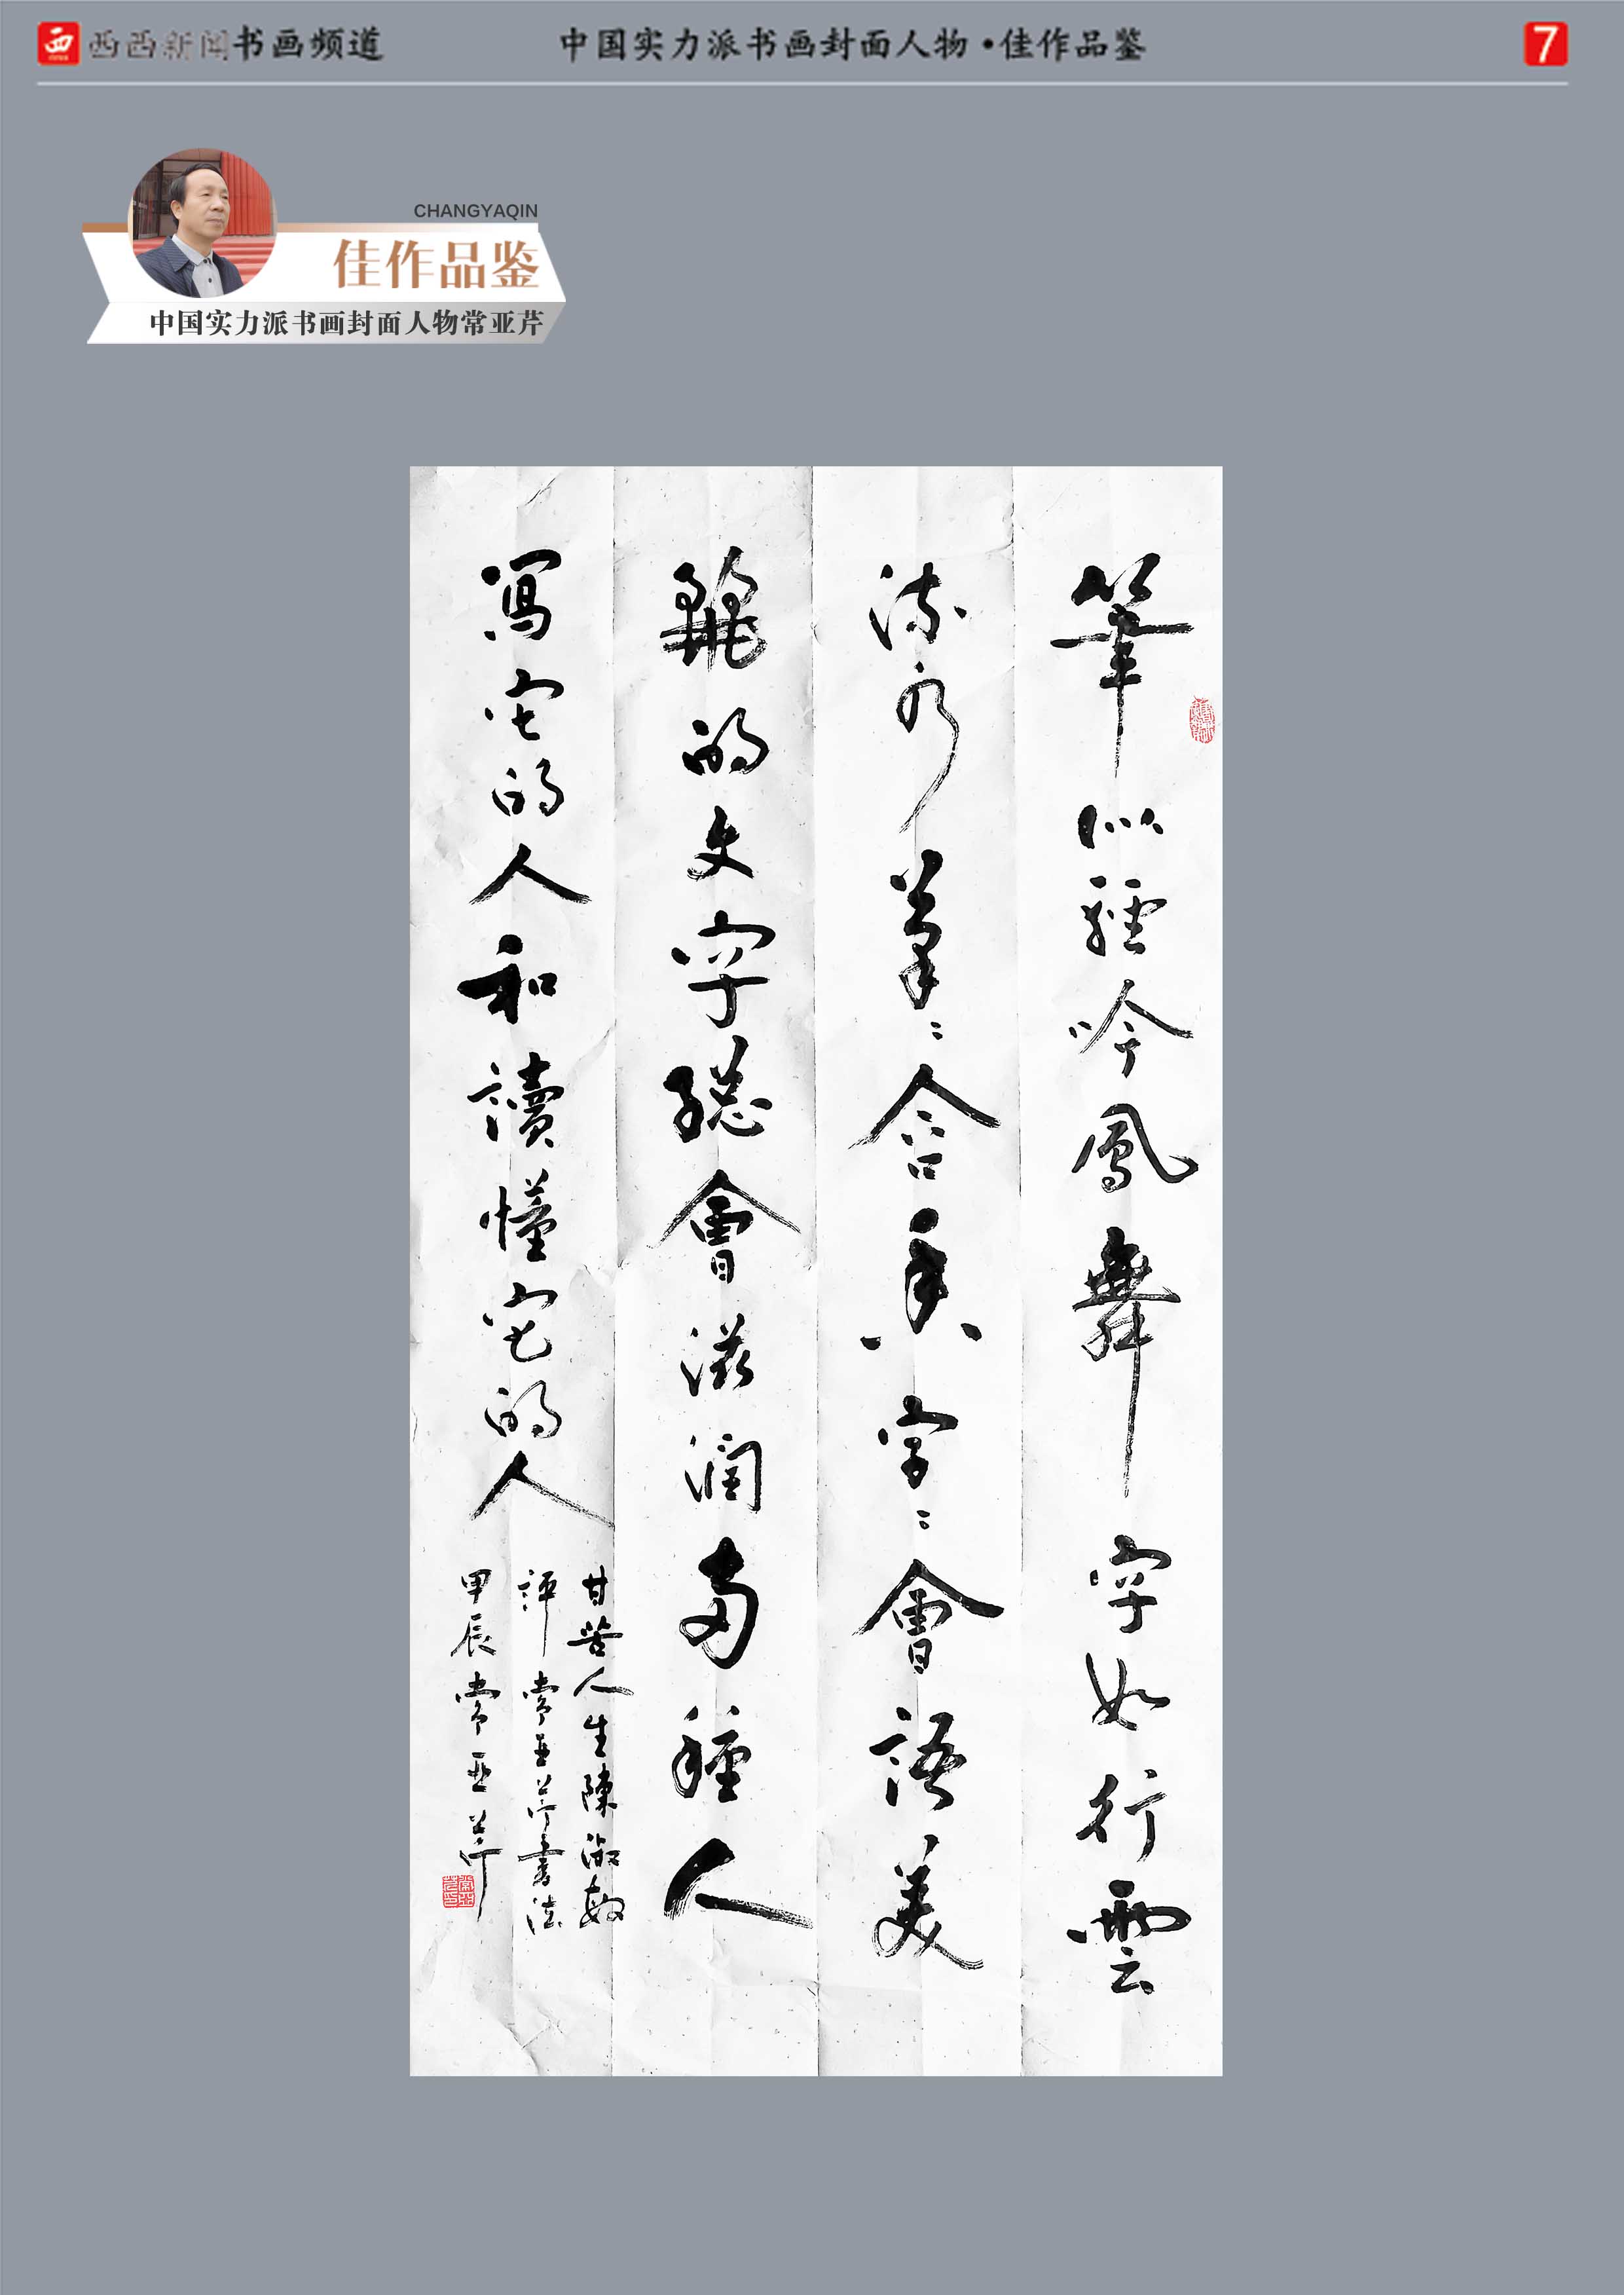 西西新闻书画频道
中国实力派书画封面人物•佳作品鉴
7
CHANGYAQIN
佳作品鉴
中国实力派书画封面人物常亚芹
筆似蛵吟鳳舞字如行雲
流水筆〻含香字〻會語美
麗的文字總會滋潤兩種人
寫它的人和讀懂它的人
甘苦人生陳淑敏
評常亚芹書法
甲辰常亚芹